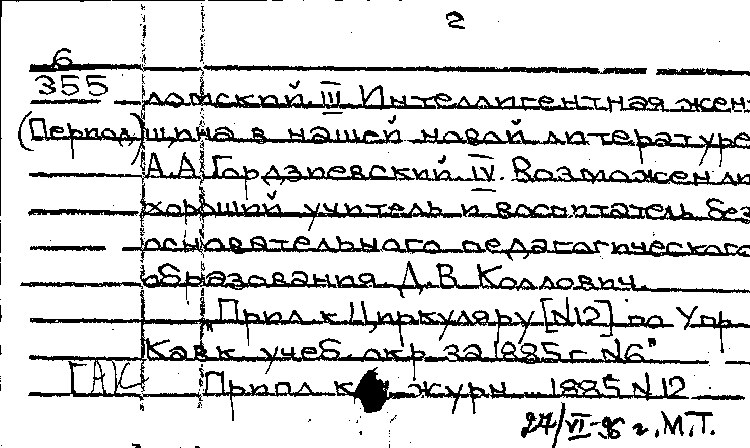 2
6
355
(Период)
ломский III Интеллигентная жен-
щина в нашей новой литературе
А.А Гордзиевский IV. Возможен ли
хороший учитель и воспитатель без
основательного педагогического
образования Д.В Коллович.
"Прил к Циркуляру [N12] по Упр
Кавк учеб. окр за 1885 г. N6"
Прилл к журн 1885 N 12
ГАК
27/VI-96 г. М.Т.